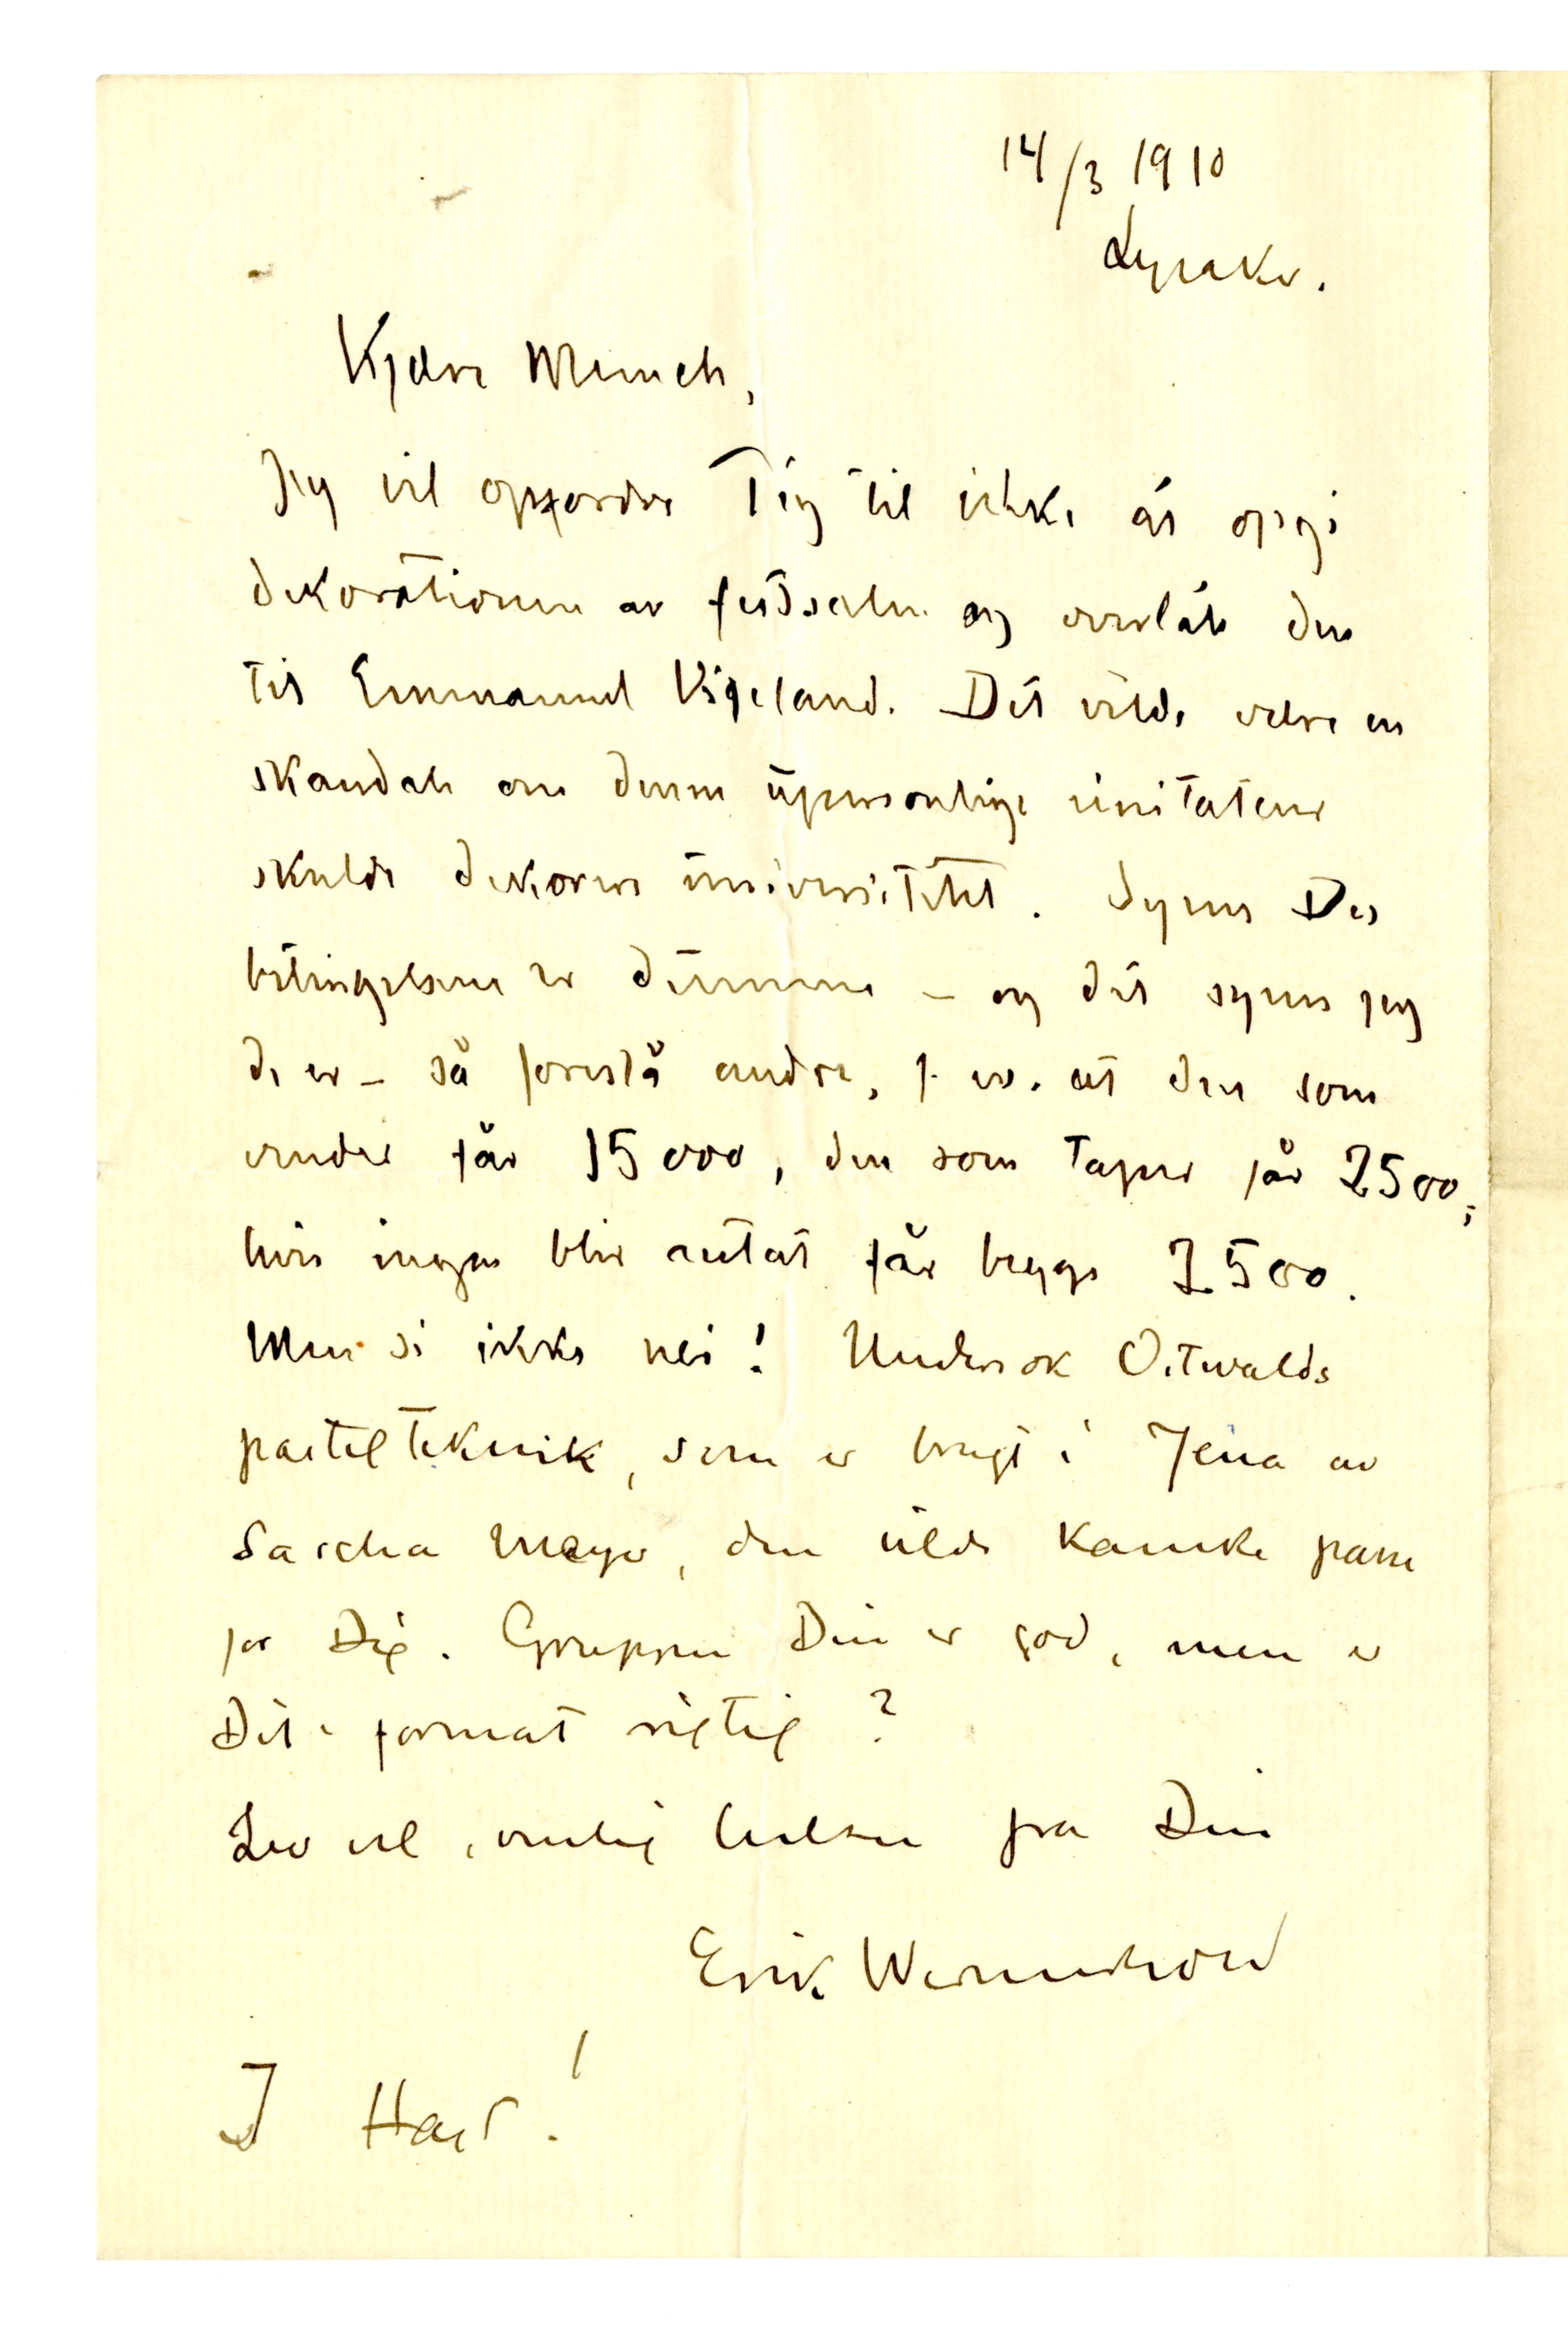 14/3 1910
Lysaker.
Kjære Munch,
Jeg vil opfordre Dig til ikke at opgi
dekorationen av festsalen og overlate den
til Emmanuel Vigeland. Det vilde være en
skandale om denne upersonlige imitatens
skulde dekorere universitetet. Synes Du
betingelserne er dumme – og det synes jeg
de er – så foreslå andre, f. ex. at den som
vinder får 15000, den som taper får 2500,;
hvis ingen blir antat får begge 7500.
Men si ikke nei! Undersøk Ostwalds
pastelteknik, som er brugt i Jena av
Sascha Meyer, den vilde kanske passe
for Dig. Gruppen Din er god, men er
Dit format rigtig?
Lev vel, venlig hilsen fra Din
Erik Werenskiold
I Hast!